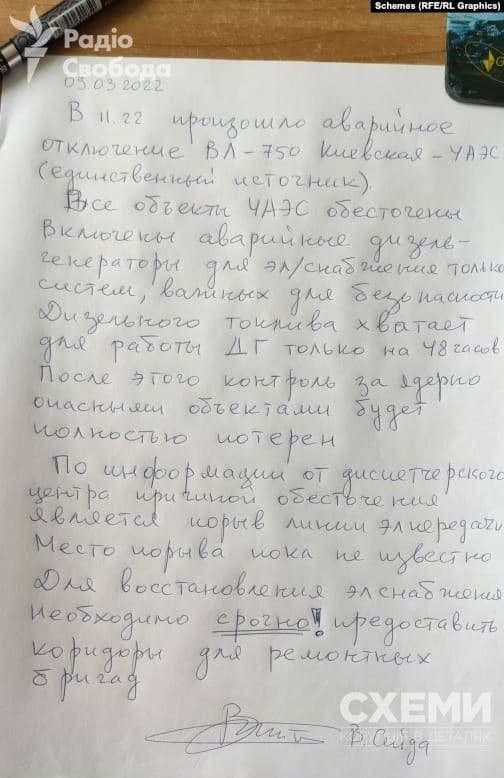 Schemes (RFE/RL Graphics)
Радіо
Свобода
09.03.2022
В 11.22 произошло аварийное
отключение ВЛ-750 Киевская-ЧАЭС
(единственный источник).
Все объекты ЧАЭС обесточены
Включены аварийные дизель-
генераторы для эл/снабжения только
систем, важных для безопасности
Дизельного топлива хватает
для работы ДГ только на 48 часов
После этого контроль за ядерно
опасными объектами будет
полностью потерян
По информации от диспетчерского
центра причиной обесточения
является порыв линии элпередачи
Место порыва пока не известно
Для восстановления элснабжения
необходимо срочно! предоставить
коридоры для ремонтных
бригад
СХЕМИ
КОРУПЦІЯ В ДЕТАЛЯХ
В. Сейда